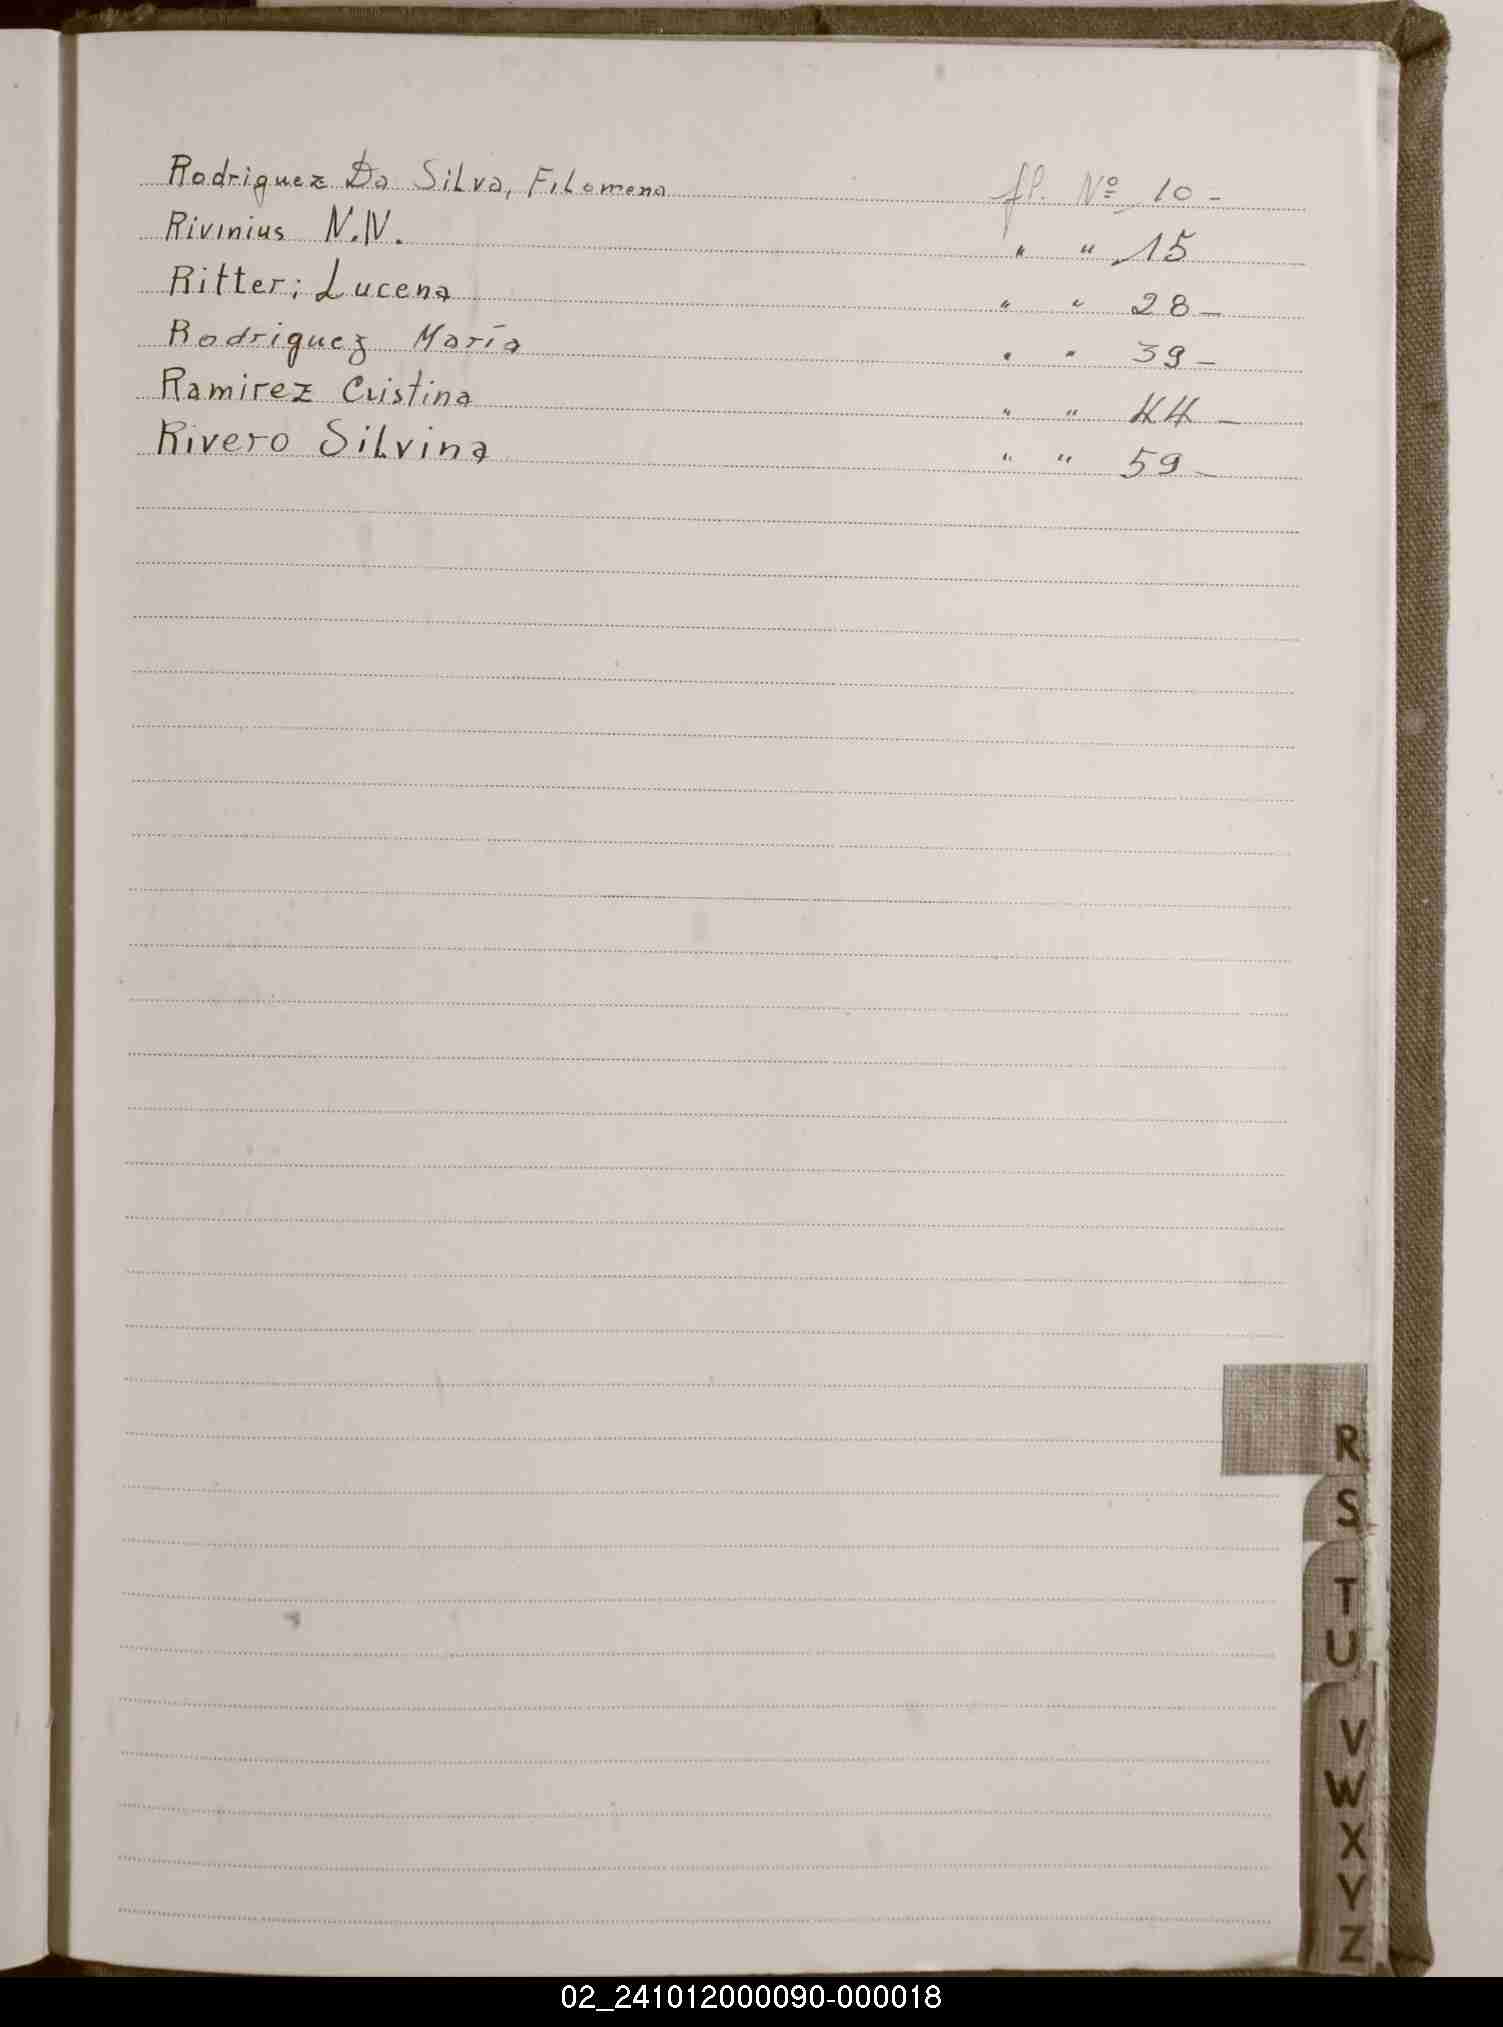 Rodriguez Da Silva, Filomena fl. Nº 10 -
Rivinius N.N. " " 15
Ritter; Lucena " " 28 -
Rodriguez María " " 39 -
Ramirez Cristina " " 44 -
Rivero Silvina " " 59 -
R
S
T
U
V
W
X
Y
Z
02_241012000090-000018